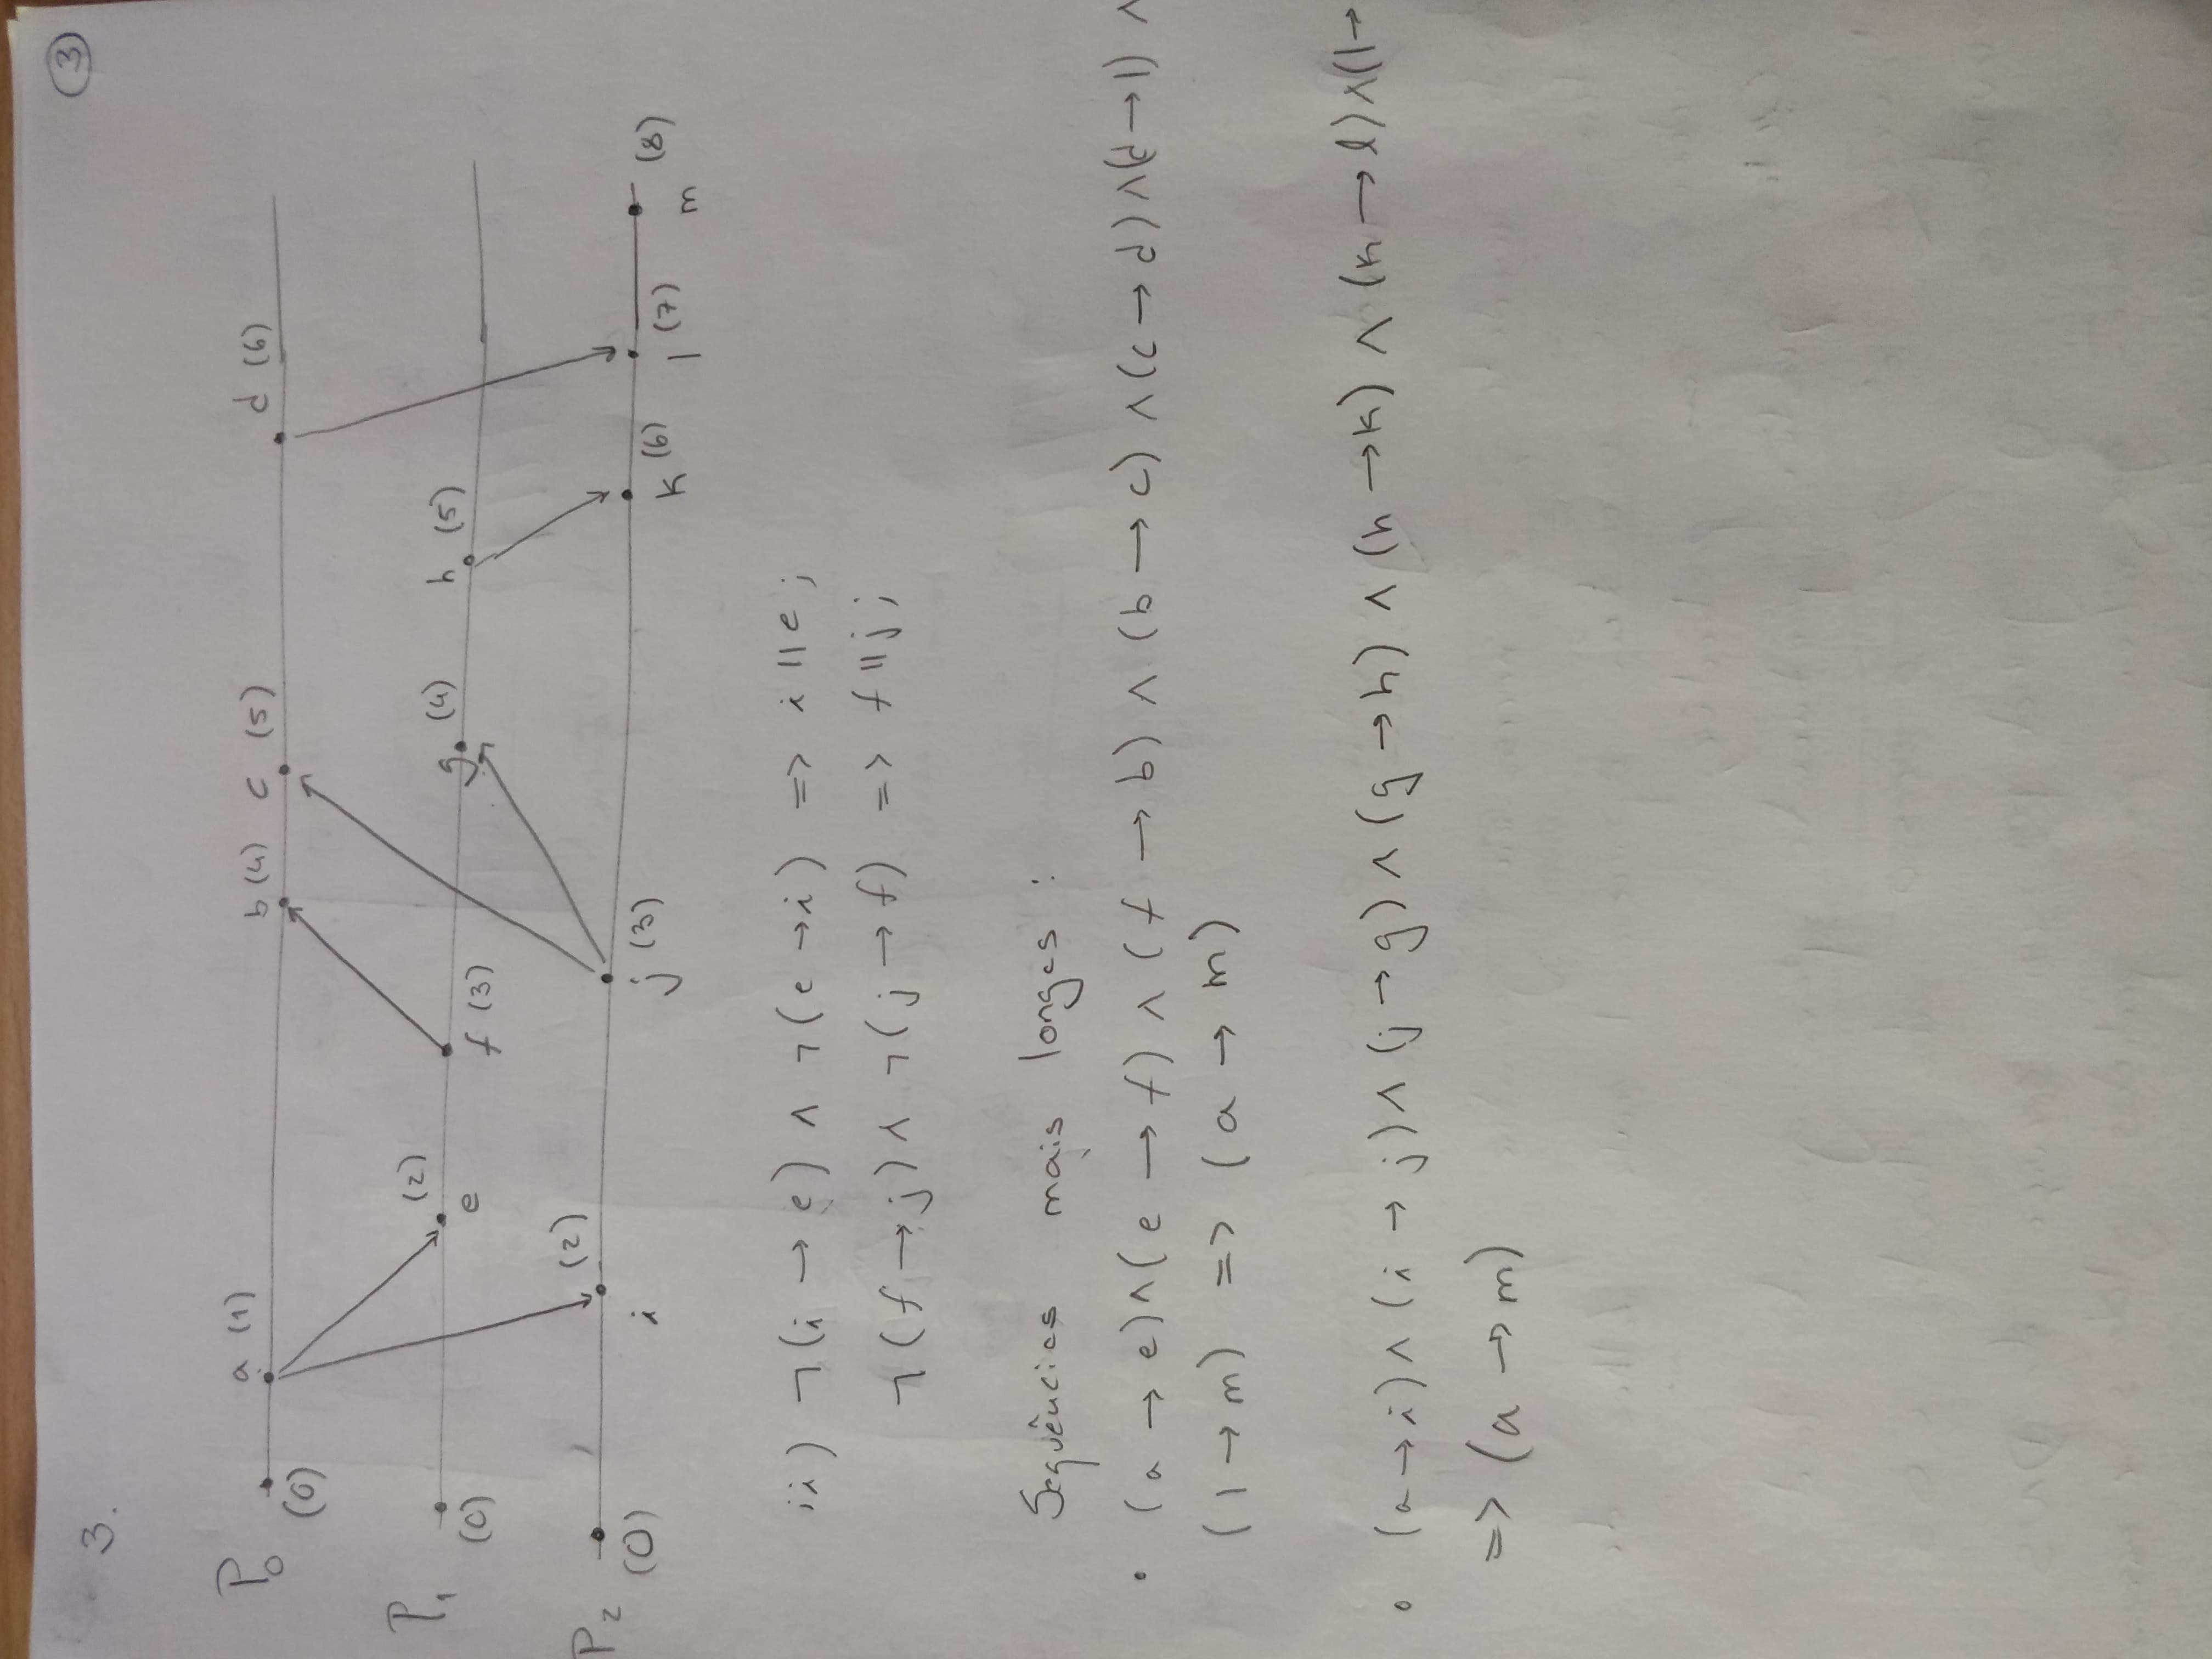 3.
3
P0
a (1)
b (4)
c (5)
d (6)
(0)
P1
(2)
e
f (3)
g (4)
h (5)
(0)
P2
(2)
i
j (3)
k (6)
l (7)
m (8)
(0)
ii) ¬(i → e) ∧ ¬(e → i) => i || e ;
¬(f → j) ∧ ¬(j → f) => f || j ;
Sequências mais longas :
• (a → e) ∧ (e → f) ∧ (f → b) ∧ (b → c) ∧ (c → d) ∧ (d → l) ∧
(l → m) => (a → m)
• (a → i) ∧ (i → j) ∧ (j → g) ∧ (g → h) ∧ (h → k) ∧ (k → l) ∧ (l →
=> (a → m)